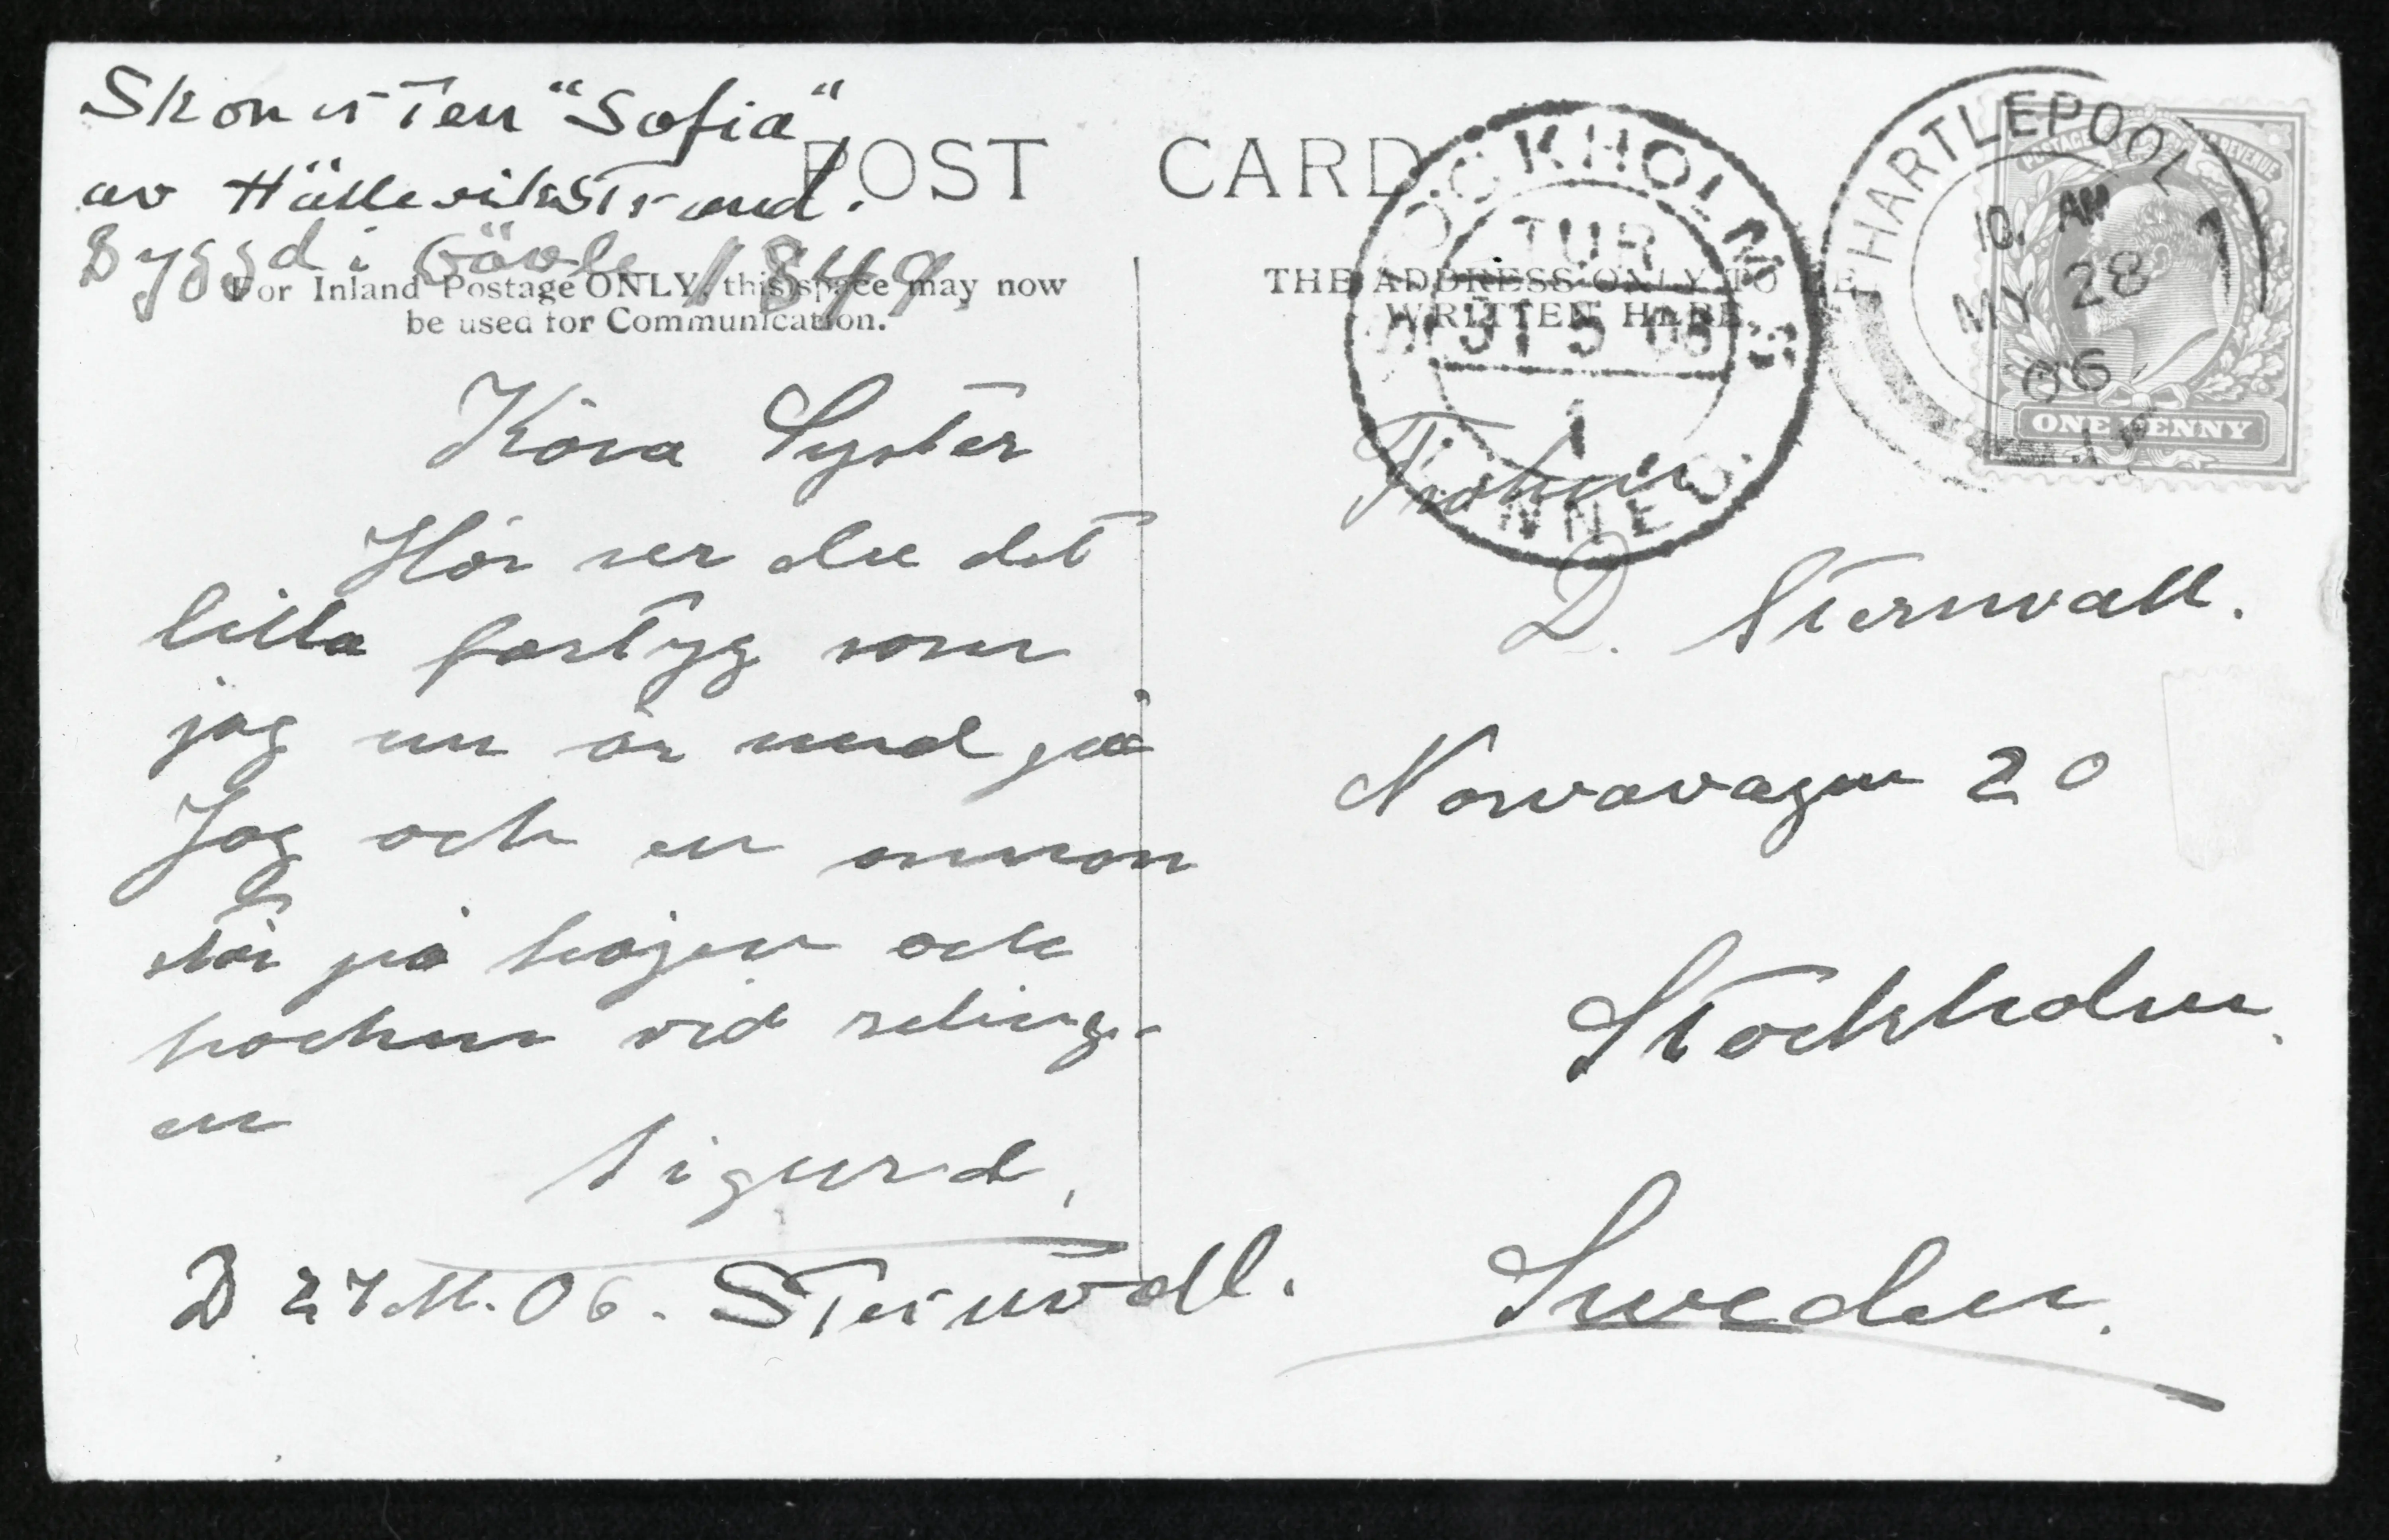 Skonerten "Sofia"
av Hälleviksstrand.
Byggd i Gävle 1849
POST CARD
For Inland Postage ONLY, this space may now
be used for Communication.
THE ADDRESS ONLY TO BE
WRITTEN HERE
STOCKHOLM
TUR
31 5 06
1
HARTLEPOOL
10. AM
MY 28
06
POSTAGE REVENUE
ONE PENNY
Kära Syster
Här ser du det
lilla fartyg som
jag nu är med på
Jag och en annan
står på babord och
kocken vid reling-
en
Sigurd.
D 27 M. 06. Sternvall.
Fröken
D. Sternvall.
Norravagen 20
Stockholm.
Sweden.